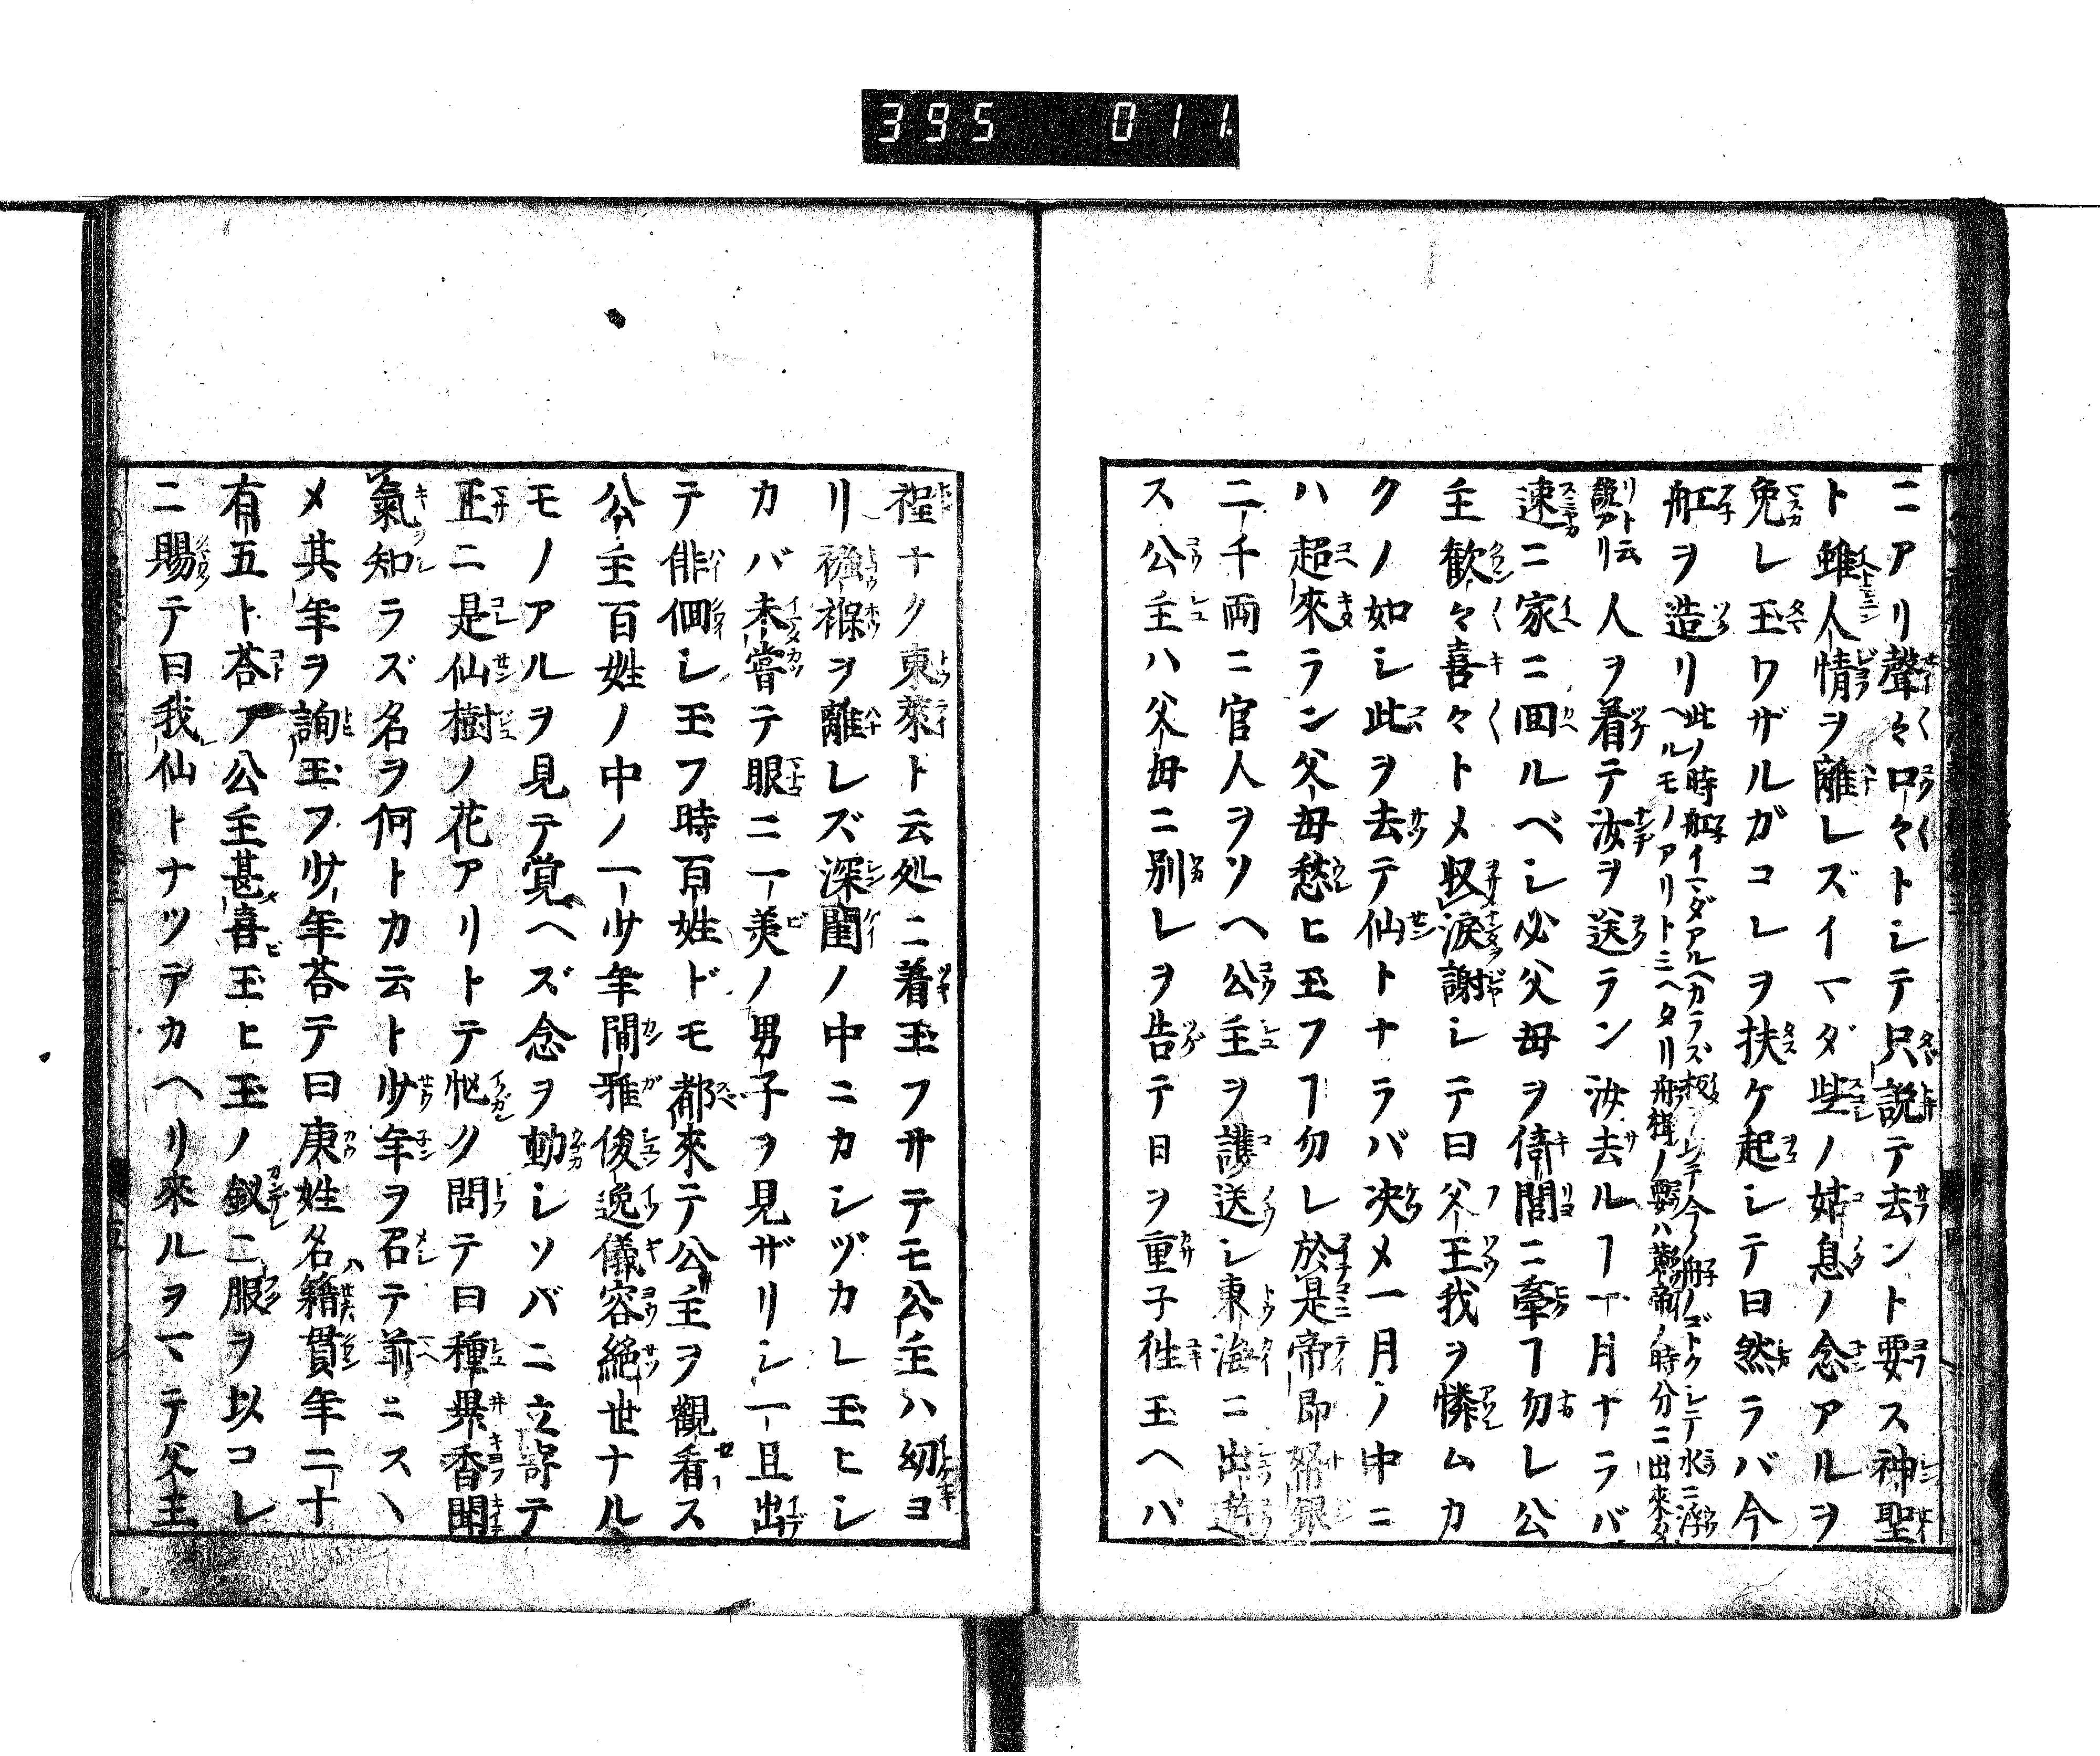 395 011
ニアリ聲々口々トシテ只説テ去ント要ス神聖
ト雖人情ヲ離レズイマダ些ノ姑息ノ念アルヲ
免レ玉ワザルガコレヲ扶ケ起シテ曰然ラバ今
舡ヲ造リ此ノ時舡イマダアルヘカラズ板ニシテ今ノ舟ノゴトクシテ水ニ浮
ヘルモノアリトミヘタリ舟楫ノ要ハ黄帝ノ時分ニ出来タ
リト云説アリ人ヲ着テ汝ヲ送ラン汝去ルヿ一月ナラバ
速ニ家ニ回ルベシ必父母ヲ倚閭ニ牽ヿ勿レ公
主歓々喜々トメ収涙謝シテ曰父王我ヲ憐ムカ
クノ如シ此ヲ去テ仙トナラバ决メ一月ノ中ニ
ハ超來ラン父母愁ヒ玉フヿ勿レ於是帝即帑銀
二千両ニ官人ヲソヘ公主ヲ護送シ東治ニ出
ス公主ハ父母ニ別レヲ告テ日ヲ重子徃玉ヘバ
程ナク東萊ト云処ニ着玉フサテモ公主ハ幼ヨ
リ襁褓ヲ離レズ深閨ノ中ニカシヅカレ玉ヒシ
カバ未嘗テ眼ニ一美ノ男子ヲ見ザリシ一旦出
テ俳佪シ玉フ時百姓ドモ都來テ公主ヲ觀看ス
公主百姓ノ中ノ一少年間雅俊逸儀容絶世ナル
モノアルヲ見テ覚ヘズ念ヲ動シソバニ立寄テ
正ニ是仙樹ノ花アリトテ忙ク問テ曰種異香聞
氣知ラズ名ヲ何トカ云ト少年ヲ召テ前ニスヽ
メ其年ヲ詢玉フ少年荅テ曰庚姓名籍貫年二十
有五ト荅ア公主甚喜玉ヒ玉ノ釵ニ服ヲ以コレ
ニ賜テ曰我仙トナツテカヘリ來ルヲマテ父王